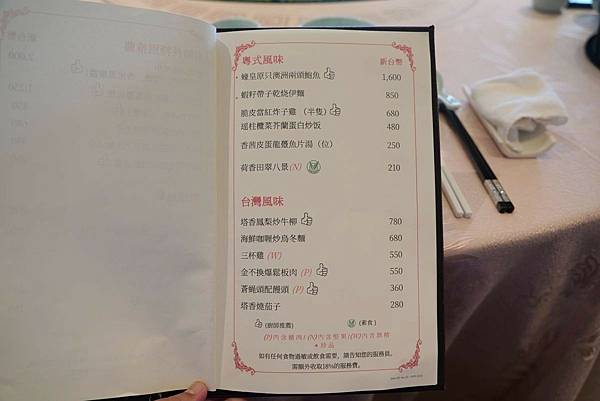 粵式風味 新台幣
蠔皇原只澳洲兩頭鮑魚 1,600
蝦籽帶子乾燒伊麵 850
脆皮當紅炸子雞 (半隻) 680
瑤柱欖菜芥蘭蛋白炒飯 480
香茜皮蛋龍躉魚片湯 (位) 250
荷香田翠八景 (N) 210
台灣風味
塔香鳳梨炒牛柳 780
海鮮咖喱炒烏冬麵 680
三杯雞 (W) 550
金不換爆鬆板肉 (P) 550
蒼蠅頭配饅頭 (P) 360
塔香燒茄子 280
(廚師推薦) (素食)
(P)內含豬肉/(N)內含堅果/(W)內含酒精
珍品
如有任何食物過敏或飲食需要,請告知您的服務員。
需額外收取18%的服務費。